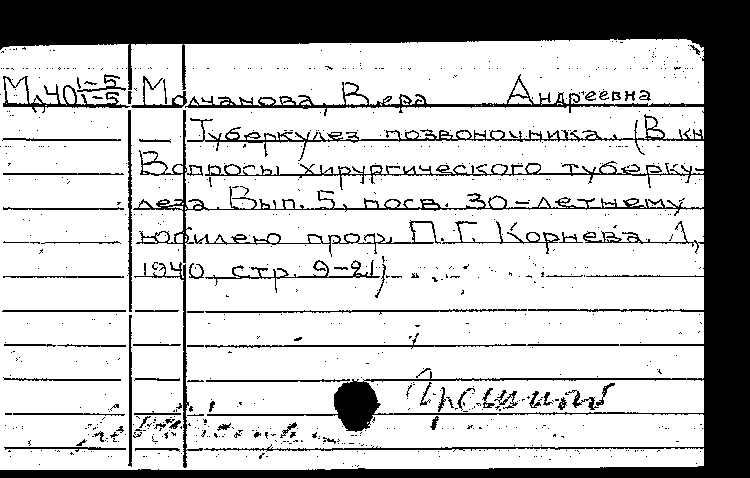 Мл40 1-5/1-5 Молчанова, Вера Андреевна
— Туберкулез позвоночника. (В кн
Вопросы хирургического туберку-
леза. Вып. 5, посв. 30-летнему
юбилею проф. П. Г. Корнева. Л.,
1940, стр. 9-21)